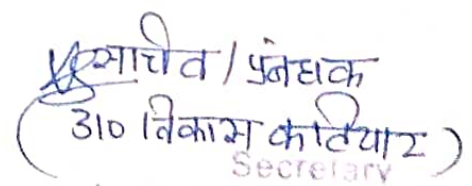 सचिव / प्रबंधक
(डा० विकास कटियार)
Secretary